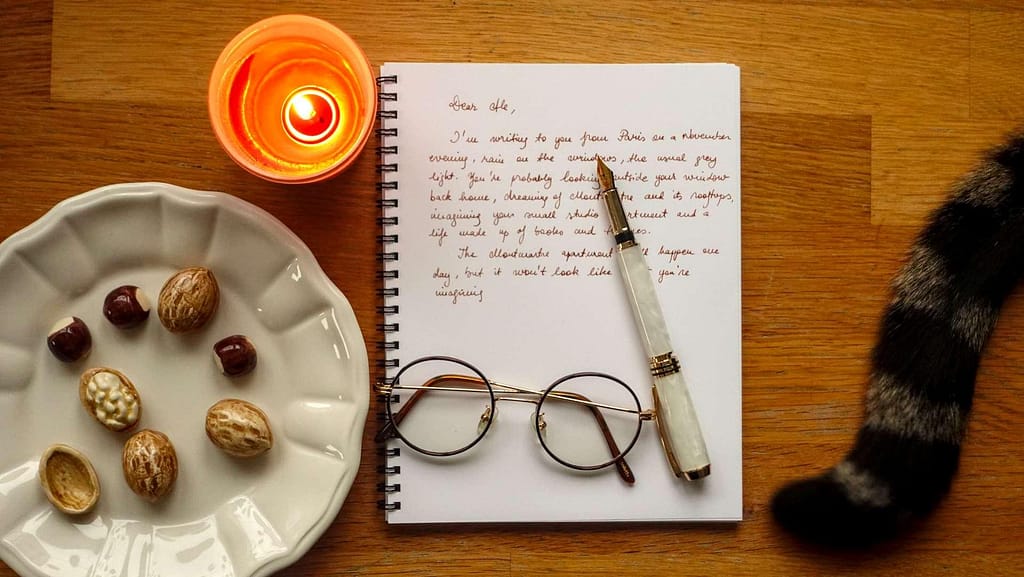 Dear Ale,
I'm writing to you from Paris on a november
evening, rain on the windows, the usual grey
light. You're probably looking outside your window
back home, dreaming of Montmartre and its rooftops,
imagining your small studio apartment and a
life made up of books and
The Montmartre apartment will happen one
day, but it won't look like you're
imagining